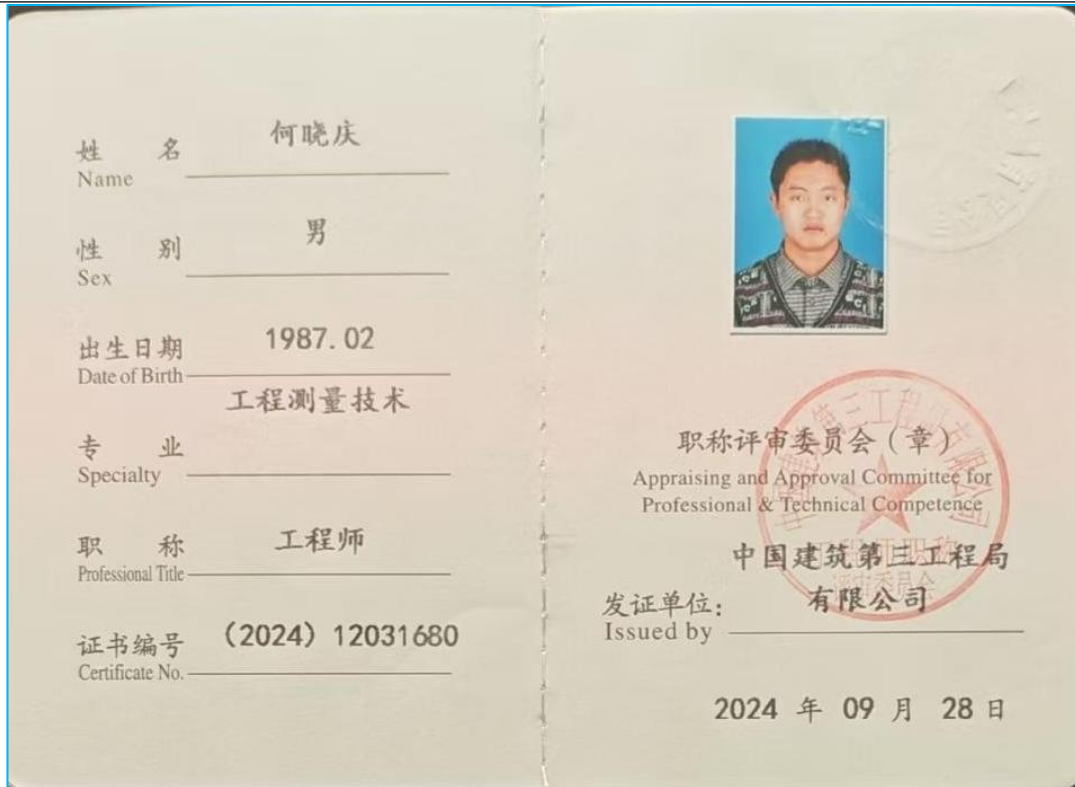 姓 名 何晓庆
Name
性 别 男
Sex
出生日期 1987.02
Date of Birth
工程测量技术
专 业
Specialty
职 称 工程师
Professional Title
证书编号 (2024) 12031680
Certificate No.
职称评审委员会（章）
Appraising and Approval Committee for
Professional & Technical Competence
中国建筑第三工程局有限公司
工程师职称
评审委员会
中国建筑第三工程局
发证单位： 有限公司
Issued by
2024 年 09 月 28 日